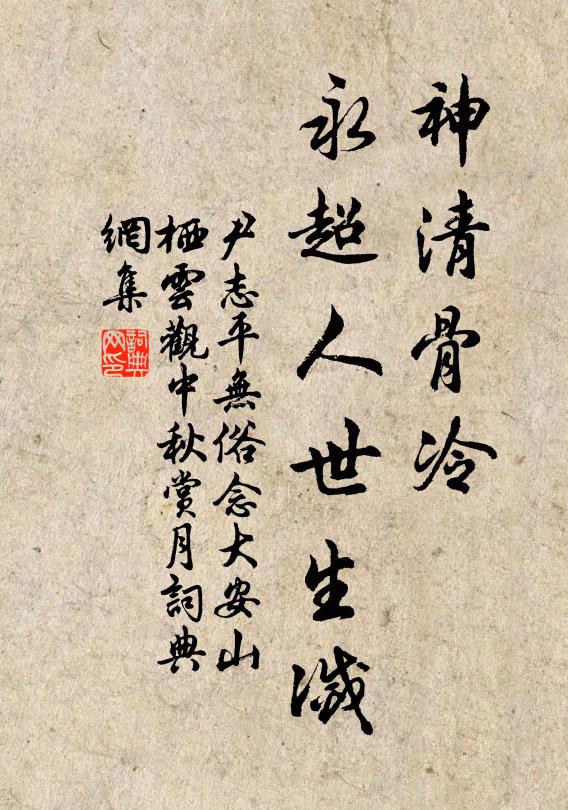 神清骨冷
永超人世生滅
尹志平無俗念大安山
栖雲觀中秋賞月詞典
網集
詞典网印